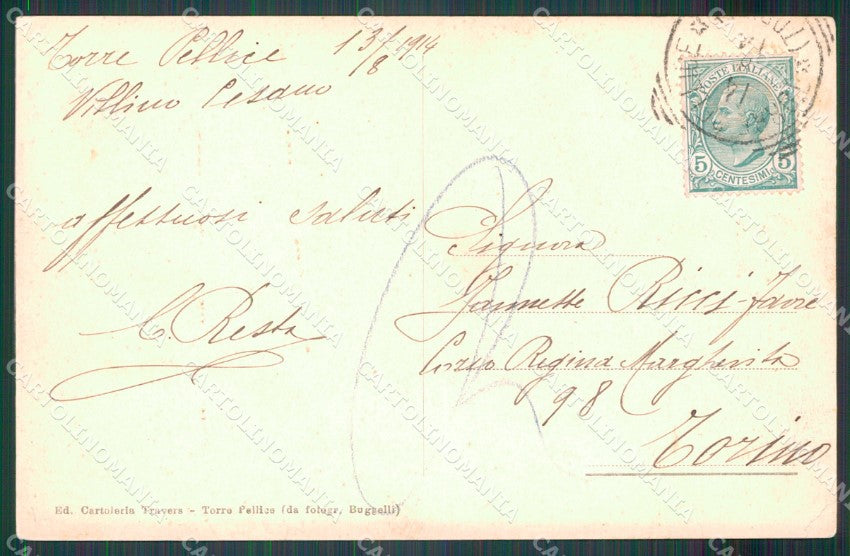 Torre Pellice 13/8 1914
Villino Cesano
affettuosi saluti
C. Resta
POSTE ITALIANE
5 CENTESIMI 5
Signora
Jannette Ricci-Favre
Corso Regina Margherita
98
Torino
Ed. Cartoleria Travers - Torre Pellice (da fotogr. Bugnelli)
CARTOLINOMANIA